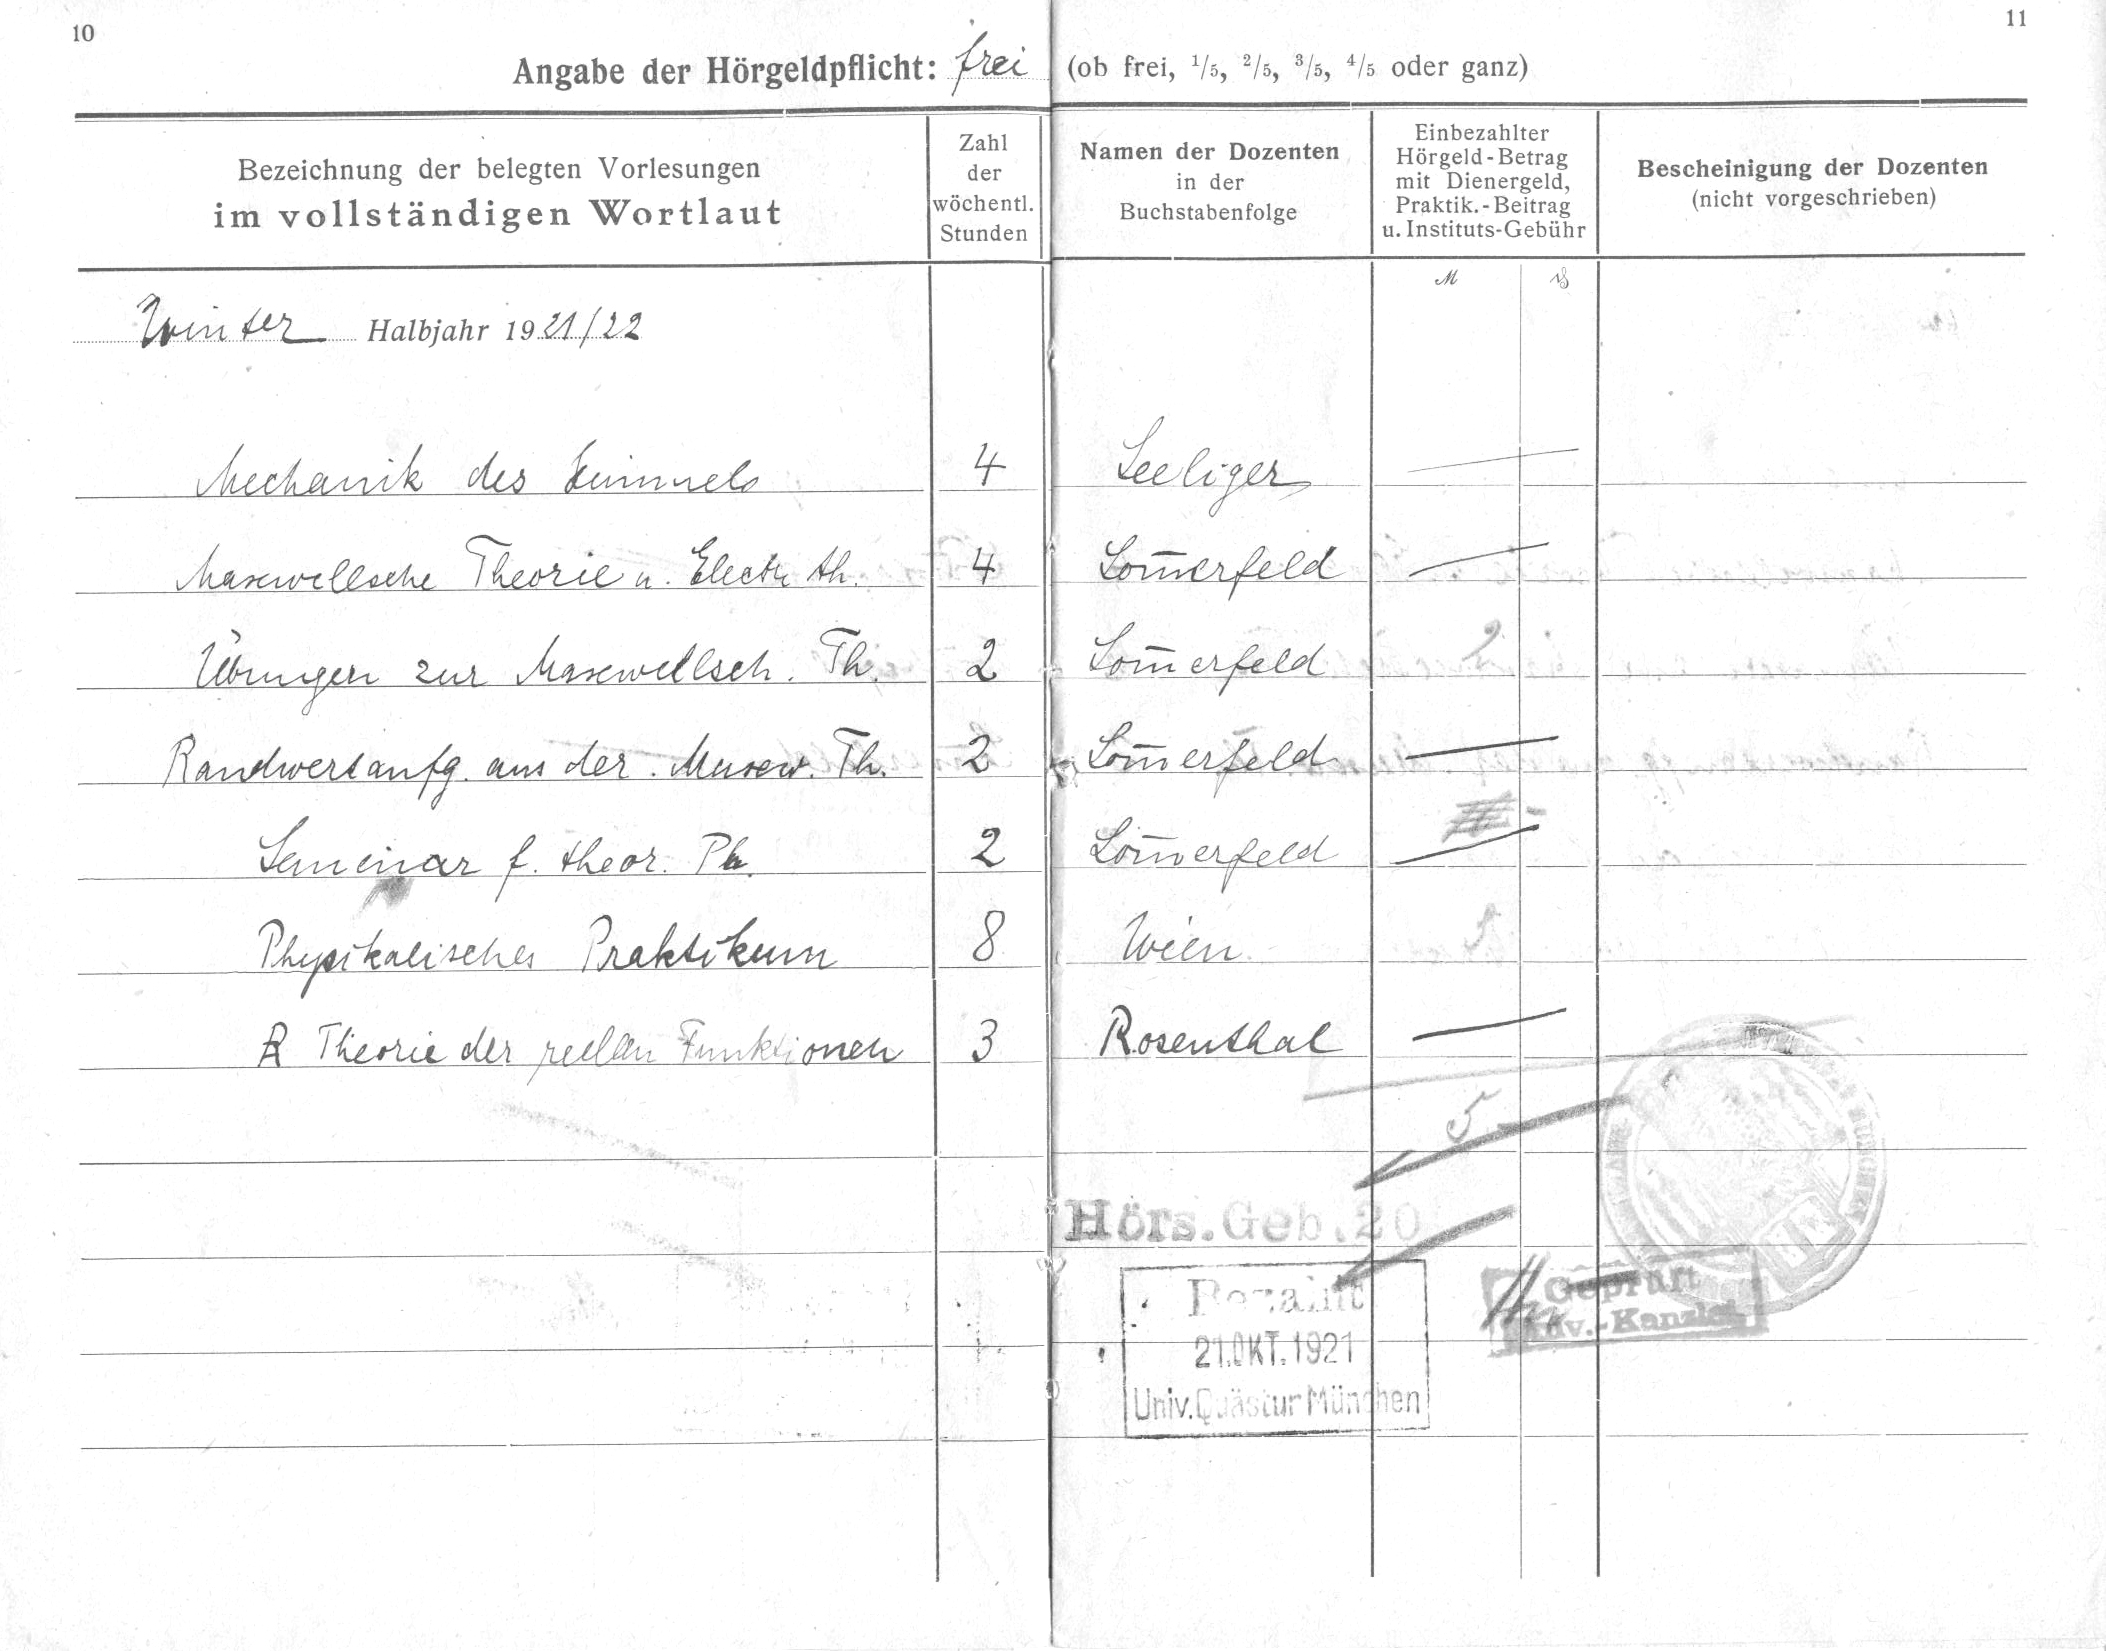 10
11
Angabe der Hörgeldpflicht: frei (ob frei, 1/5, 2/5, 3/5, 4/5 oder ganz)
Bezeichnung der belegten Vorlesungen
im vollständigen Wortlaut
Zahl
der
wöchentl.
Stunden
Namen der Dozenten
in der
Buchstabenfolge
Einbezahlter
Hörgeld-Betrag
mit Dienergeld,
Praktik.-Beitrag
u. Instituts-Gebühr
Bescheinigung der Dozenten
(nicht vorgeschrieben)
M
Winter Halbjahr 1921/22
Mechanik des Himmels 4 Seeliger —
Maxwellsche Theorie u. Electr. th. 4 Som̅erfeld —
Übungen zur Maxwellsch. Th. 2 Som̅erfeld 2
Randwertaufg. aus der. Maxw. Th. 2 Som̅erfeld —
Seminar f. theor. Ph. 2 Som̅erfeld —
Physikalisches Praktikum 8 Wien
R Theorie der reellen Funktionen 3 Rosenthal —
5.-
Hörs.Geb.20
Bezahlt
21.OKT.1921
Univ.Quästur München
Geprüft
-Kanzlei